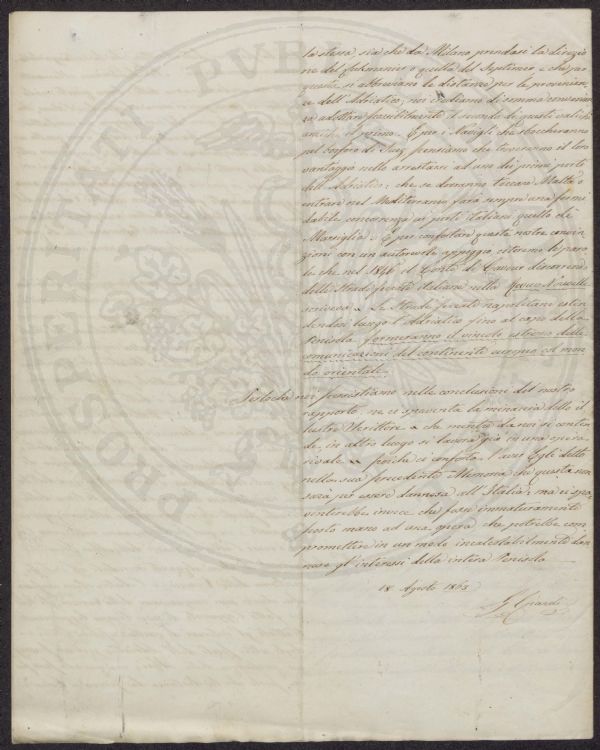 la stessa sia che da Milano prendasi la direzio
ne del o quella del Septimer e che per
questa si abbreviano le distanze per le provenien
ze dell'Adriatico, noi crediamo di somma convenien
za adottare possibilmente il secondo di questi valichi
anziche il primo. E poi i Navigli che sboccheranno
nel Bosforo di Suez pensiamo che troveranno il loro
vantaggio nello arrestarsi ad uno dei primi porti
dell'Adriatico; che se dovranno toccare Malta o
entrare nel Mediterraneo fara sempre una formi
dabile concorrenza ai porti italiani quello di
Marsiglia. E per confortare queste nostre convin
zioni con un autorevole appoggio, citeremo le paro
le che nel 1846 il Conte di Cavour discorrendo
delle Strade ferrate italiane nella
scriveva "Le Strade ferrate napolitane esten
dendosi lungo l'Adriatico fino al capo della
Penisola, formeranno il vincolo estremo delle
comunicazioni del continente europeo col mon
do orientale."
Postoche noi persistiamo nelle conclusioni del nostro
rapporto, ne ci spaventa la minaccia dello il
lustre Scrittore "che mentre da noi si conten
de, in altro luogo si lavora gia in una opera
rivale" perche ci conforta l'aver Egli detto
nella sua precedente Memoria che questa non
sara per essere dannosa all'Italia; ma ci spa
venterebbe invece che fosse immaturamente
posto mano ad una opera che potrebbe com
promettere in un modo incalcolabilmente dan
noso gl'interessi della intera Penisola
18 Agosto 1863
PVBLI
PROSPERITATI